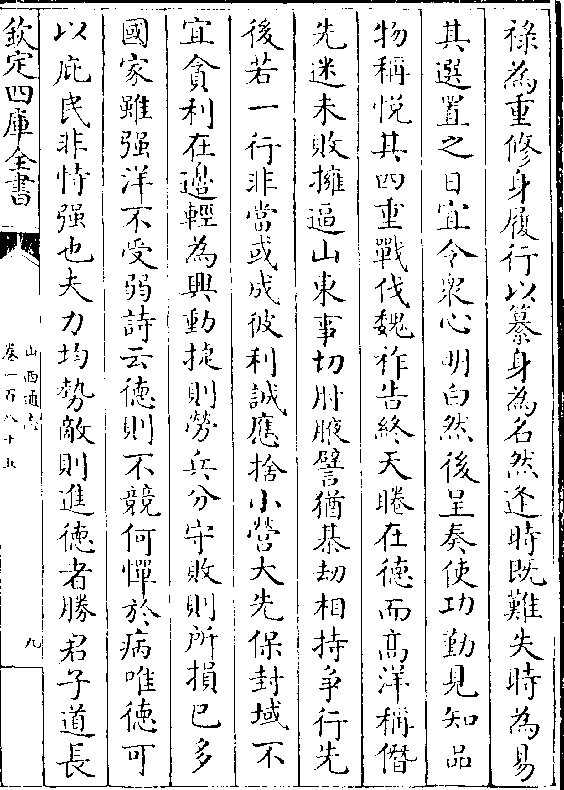 祿為重修身履行以纂身為名然逢時既難失時為易
其選置之日宜令衆心明白然後呈奏使功勤見知品
物稱悦其四重戰伐魏祚告終天睠在德而髙洋稱僭
先迷未敗擁逼山東事切肘腋譬猶棊劫相持爭行先
後若一行非當或成彼利誠應捨小營大先保封域不
宜貪利在邉輕為興動捷則勞兵分守敗則所損已多
國家雖强洋不受弱詩云德則不競何憚於病唯德可
以庇民非恃强也夫力均勢敵則進德者勝君子道長
欽定四庫全書
山西通志
卷一百八十五
九